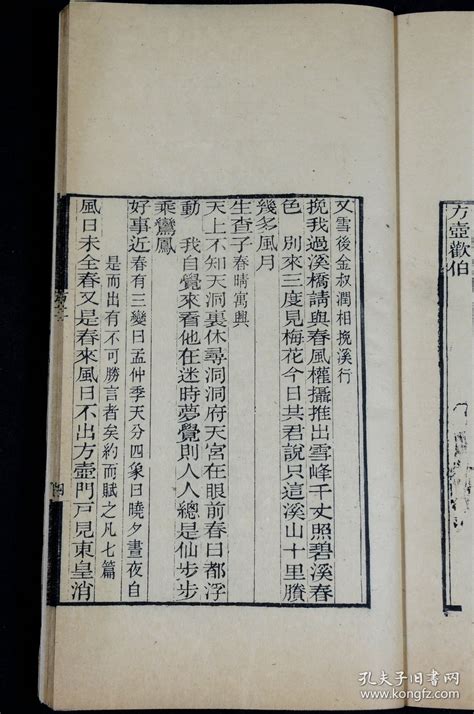 方壺歡伯
又雪後金叔潤相挽溪行
挽我過溪橋請與春風權攝推出雪峰千丈照碧溪春
色　別來三度見梅花今日共君說只這溪山十里賸
幾多風月
生查子春晴寓興
天上不知天洞裏休尋洞洞府天宮在眼前春日都浮
動　我自覺來看他在迷時夢覺則人人總是仙步步
乘鸞鳳
好事近春有三變曰孟仲季天分四象曰曉夕晝夜自
是而出有不可勝言者矣約而賦之凡七篇
風日未全春又是春來風日不出方壺門戸見東皇消
孔夫子旧书网
www.kongfz.com